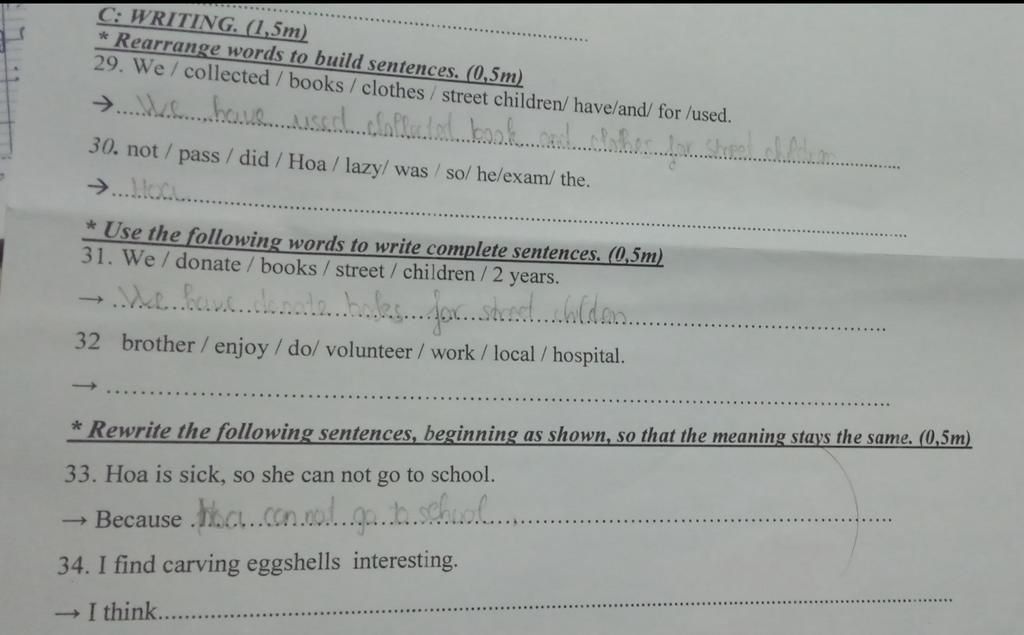 C: WRITING. (1,5m)
* Rearrange words to build sentences. (0,5m)
29. We / collected / books / clothes / street children/ have/and/ for /used.
→ We have used collected book and clothes for street children
30. not / pass / did / Hoa / lazy/ was / so/ he/exam/ the.
→ Hoa
* Use the following words to write complete sentences. (0,5m)
31. We / donate / books / street / children / 2 years.
→ We have donate for street children
32 brother / enjoy / do/ volunteer / work / local / hospital.
→
* Rewrite the following sentences, beginning as shown, so that the meaning stays the same. (0,5m)
33. Hoa is sick, so she can not go to school.
→ Because Hoa can not go to school
34. I find carving eggshells interesting.
→ I think